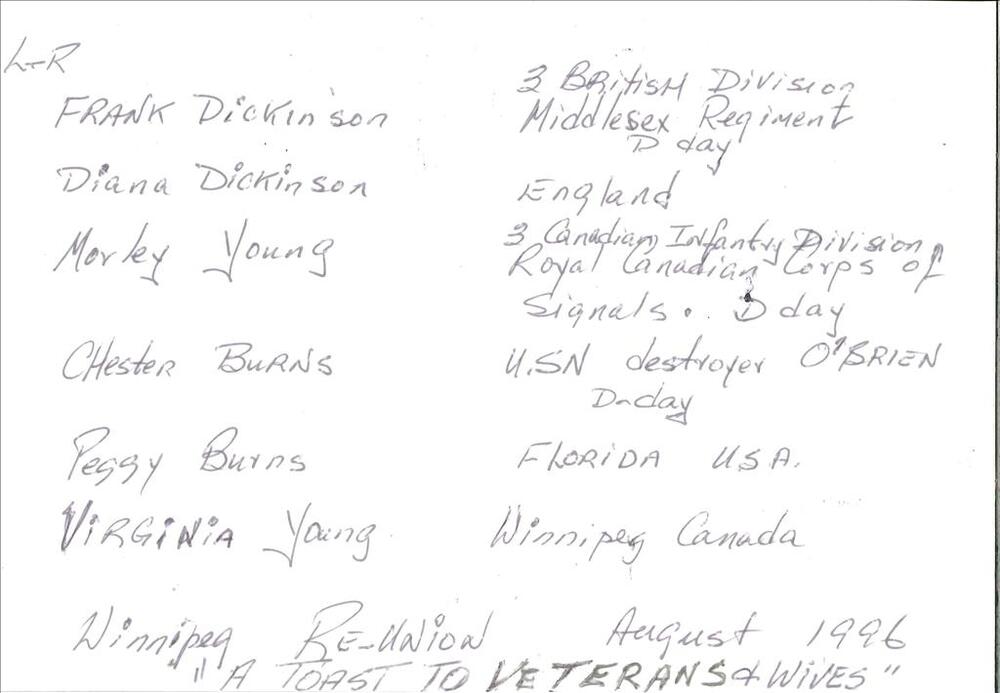 L-R
3 British Division
Frank Dickinson Middlesex Regiment
D day
Diana Dickinson England
3 Canadian Infantry Division,
Morley Young Royal Canadian Corps of
Signals. D day
Chester Burns U.S.N destroyer O'BRIEN
D-day
Peggy Burns FLORIDA U.S.A.
VIRGINIA Young Winnipeg Canada
Winnipeg RE-UNION August 1996
"A TOAST TO VETERANS & WIVES"